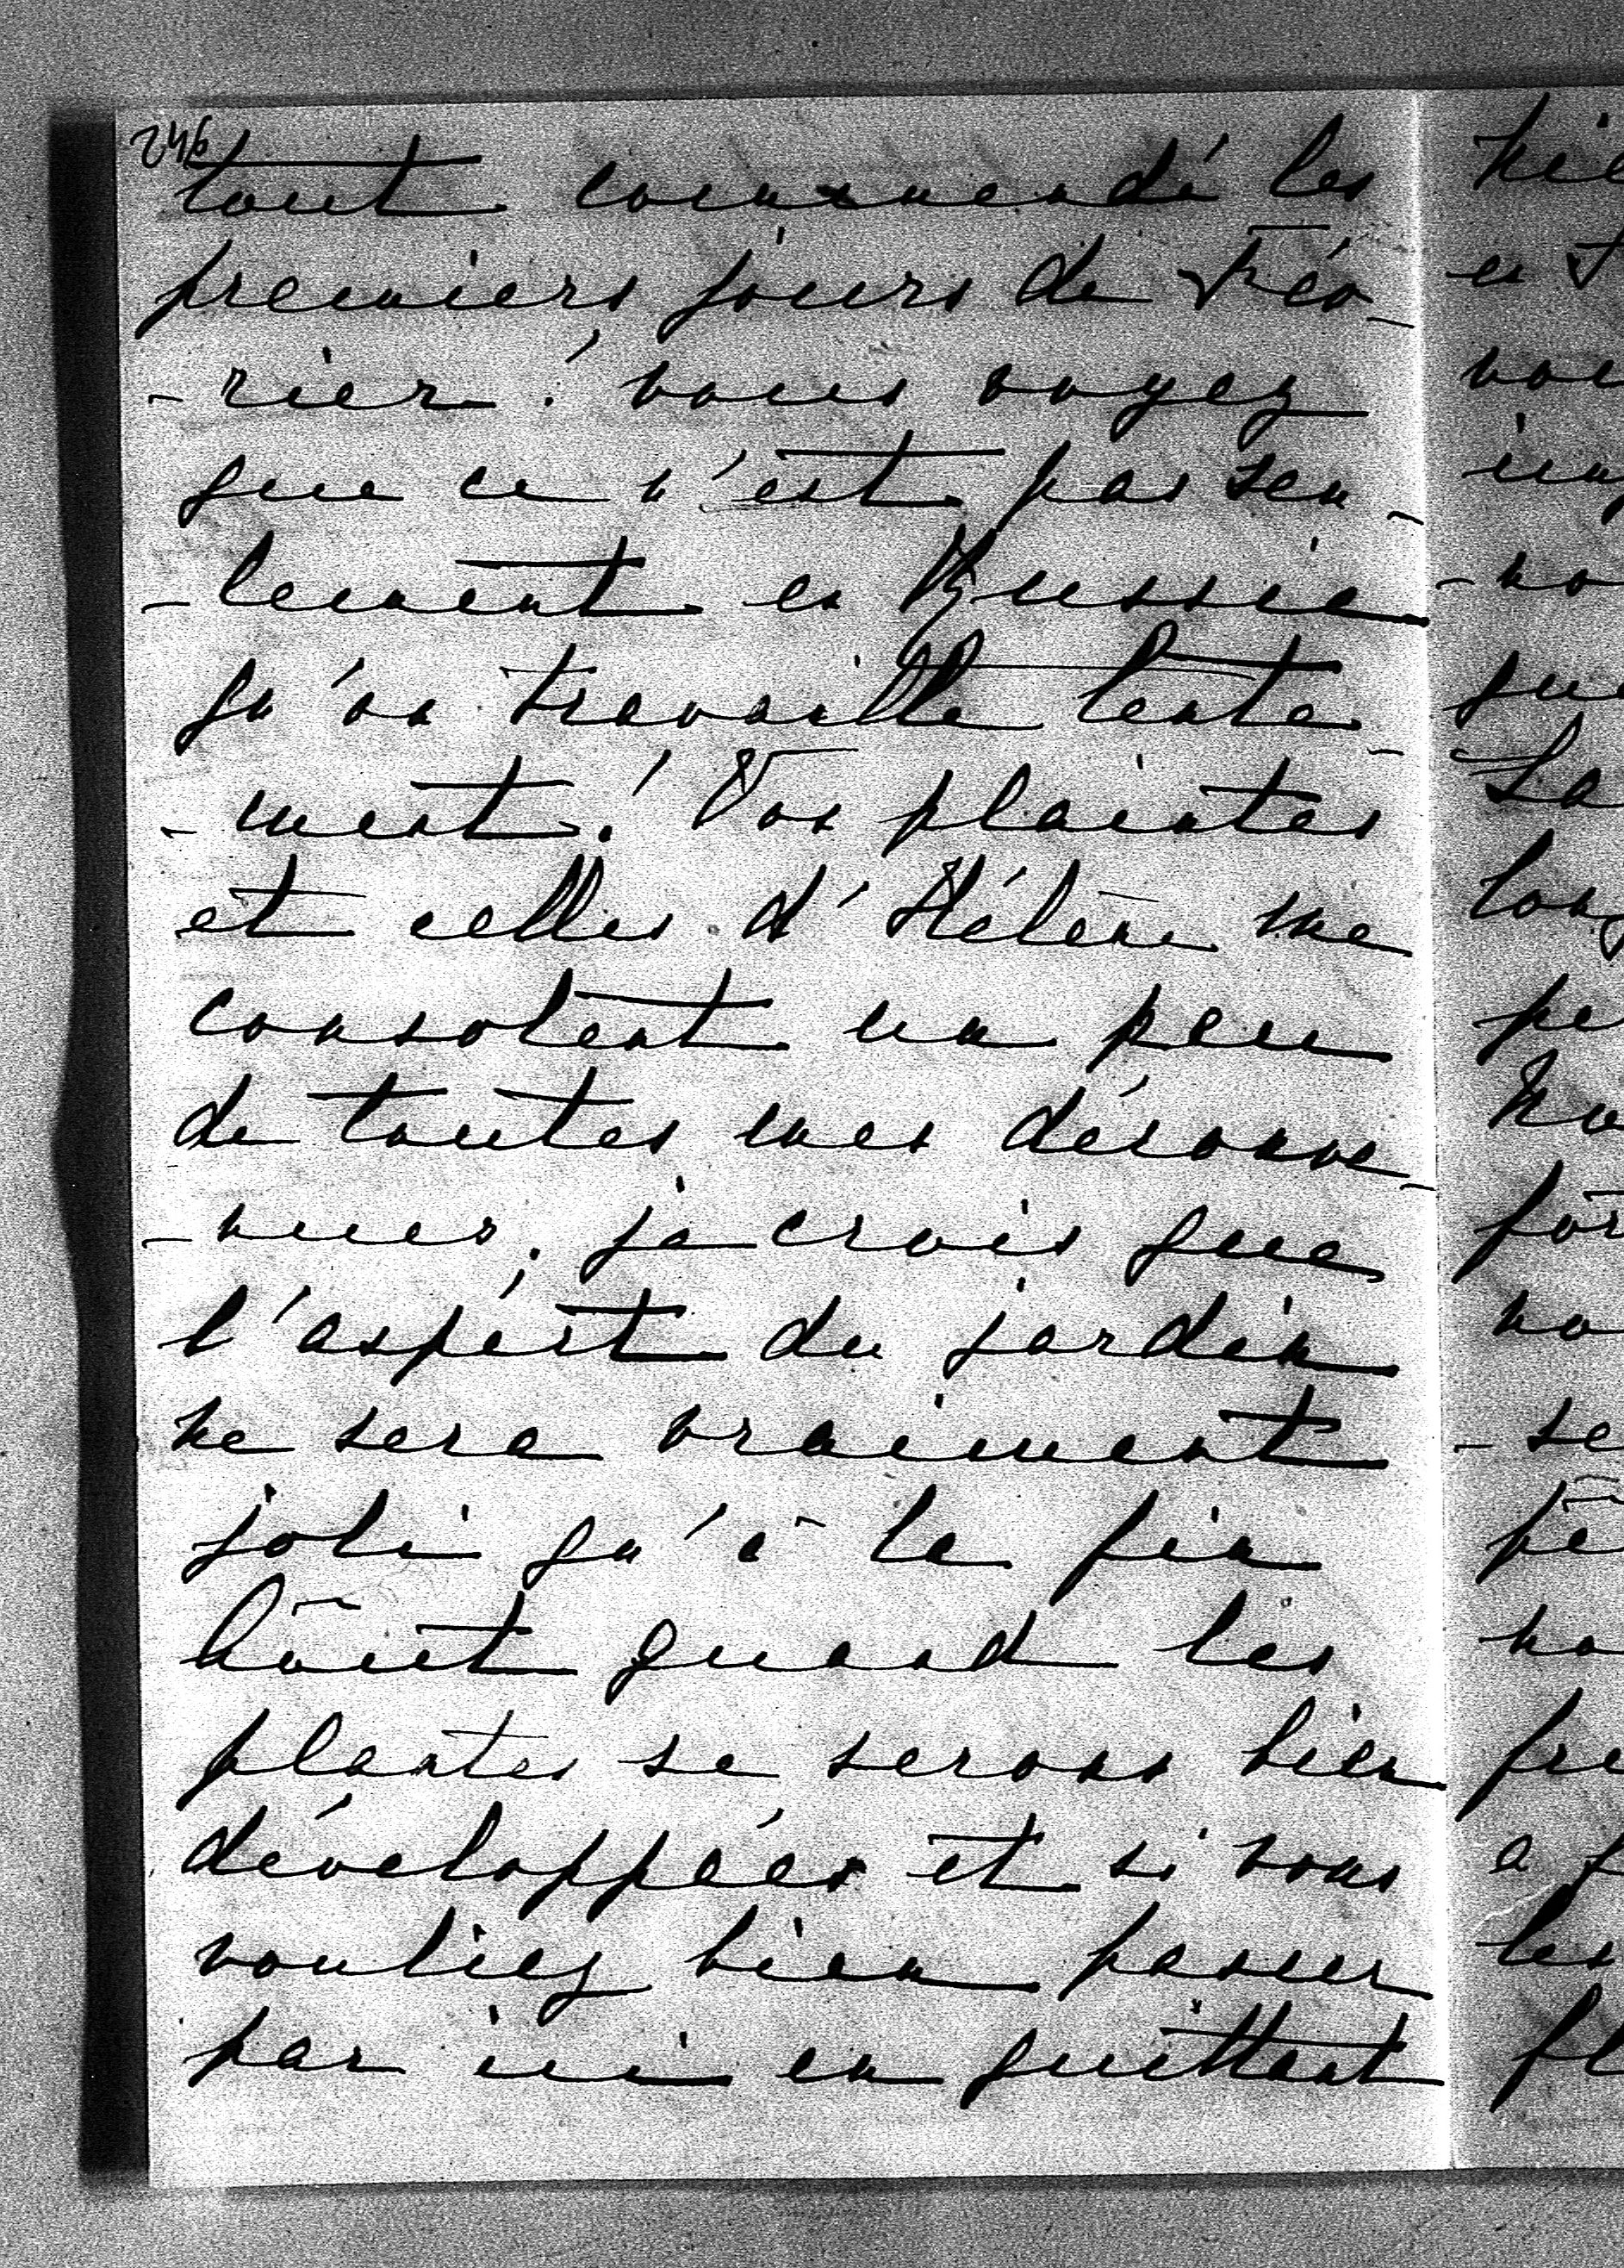 246
tout commandé les
premiers jours de Fév-
-rier! vous voyez
que ce n'est pas seu-
-lement en Russie
qu'on travaille lente-
-ment! Vos plaintes
et celles d'Hélène me
consolent un peu
de toutes mes déconve-
-nues. je crois que
l'aspect du jardin
ne sera vraiment
joli qu'à la fin
Août quand les
plantes se serons bien
développées et si vous
vouliez bien passer
par ici en quittant